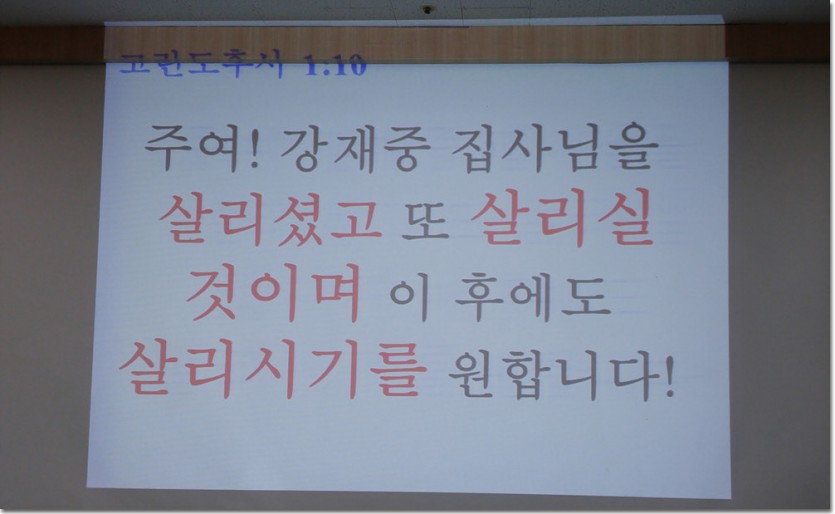 고린도후서 1:10
주여! 강재중 집사님을
살리셨고 또 살리실
것이며 이 후에도
살리시기를 원합니다!